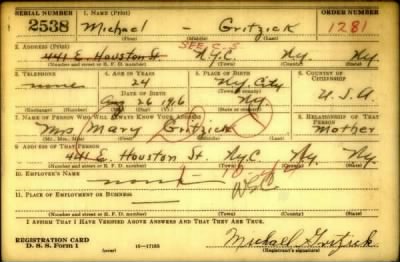 SERIAL NUMBER 1. NAME (Print) ORDER NUMBER
2538 Michael — Gritzick 1281
(First) (Middle) (Last)
SEE C.S.
2. ADDRESS (Print)
441 E. Houston St. N.Y.C. Ny. Ny.
(Number and street or R. F. D. number) (Town) (County) (State)
3. TELEPHONE 4. AGE IN YEARS 5. PLACE OF BIRTH 6. COUNTRY OF CITIZENSHIP
none 24 Ny. City
DATE OF BIRTH
Aug 26 1916 Ny. U.S.A
(Mo.) (Day) (Yr.) (State or country)
7. NAME OF PERSON WHO WILL ALWAYS KNOW YOUR ADDRESS 8. RELATIONSHIP OF THAT PERSON
Mrs Mary Gritzick Mother
(Mr., Mrs., Miss) (First) (Middle) (Last)
9. ADDRESS OF THAT PERSON
441 E. Houston St. Ny.C Ny Ny.
(Number and street or R. F. D. number) (Town) (County) (State)
10. EMPLOYER'S NAME
none
11. PLACE OF EMPLOYMENT OR BUSINESS
(Number and street or R. F. D. number) (Town) (County) (State)
I AFFIRM THAT I HAVE VERIFIED ABOVE ANSWERS AND THAT THEY ARE TRUE.
REGISTRATION CARD
D. S. S. Form 1 (over) 16—17105 Michael Gritzick
(Registrant's signature)